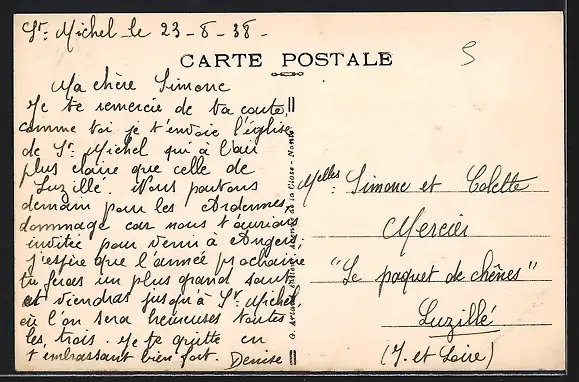 St. Michel le 23-8-38-
CARTE POSTALE
5
Ma chère Simone
Je te remercie de ta carte,
comme toi je t'envoie l'église
de St. Michel qui à l'air
plus claire que celle de
Luzillé. Nous partons
demain pour les Ardennes,
dommage car nous t'aurions
invitée pour venir à Angers,
j'espère que l'année prochaine
tu feras un plus grand saut
et viendras jusqu'à St. Michel,
où l'on sera heureuses toutes
les trois. Je te quitte en
t'embrassant bien fort. Denise
G. de la Close - Nantes
Melles. Simone et Colette
Mercier
"Le paquet de chênes"
Luzillé
(I. et Loire)